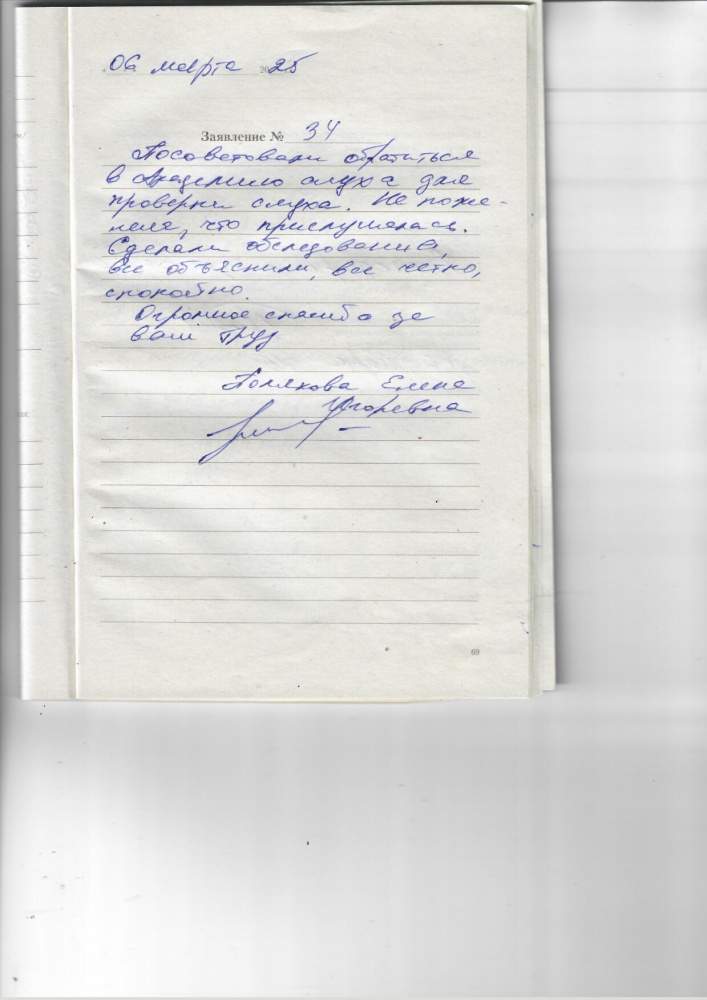 06 марта 2025
Заявление № 34
Посоветовали обратиться
в Академию слуха для
проверки слуха. Не пожа-
лела, что прислушалась.
Сделали обследования,
все объяснили, все четко,
спокойно.
Огромное спасибо за
ваш труд
Полякова Елена
Игоревна
69